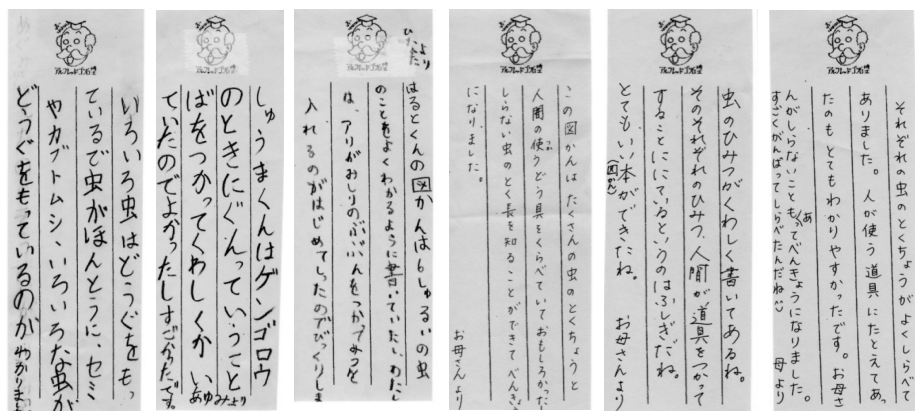 いろいろ虫はどうぐをもっ
ているで虫がほんとうに、セミ
やカブトムシ、いろいろな虫が
どうぐをもっているのがわかりま
しゅうまくんはゲンゴロウ
のときにぐんっていうこと
ばをつかってくわしくか い
ていたのでよかったしすごかったです。
あゆみより
より
はるとくんの図かんは6しゅるいの虫
のことをよくわかるように書いていたし、わたし
は、アリがおしりのぶぶんをつかってみつを
入れるのがはじめてしったのでびっくりしま
この図かんは、たくさんの虫のとくちょうと
人間の使うどう具をくらべていておもしろかった
しらない虫のとく長を知ることができてべんきょう
になりました。
お母さんより
虫のひみつがくわしく書いてあるね。
そのそれぞれのひみつ、人間が道具をつかって
することににているというのはふしぎだね。
とてもいい本ができたね。
(図かん)
お母さんより
それぞれの虫のとくちょうがよくしらべて
ありました。人が使う道具にたとえてあっ
たのもとてもわかりやすかったです。お母さ
んがしらないこともあってべんきょうになりました。
すごくがんばってしらべたんだね
母より